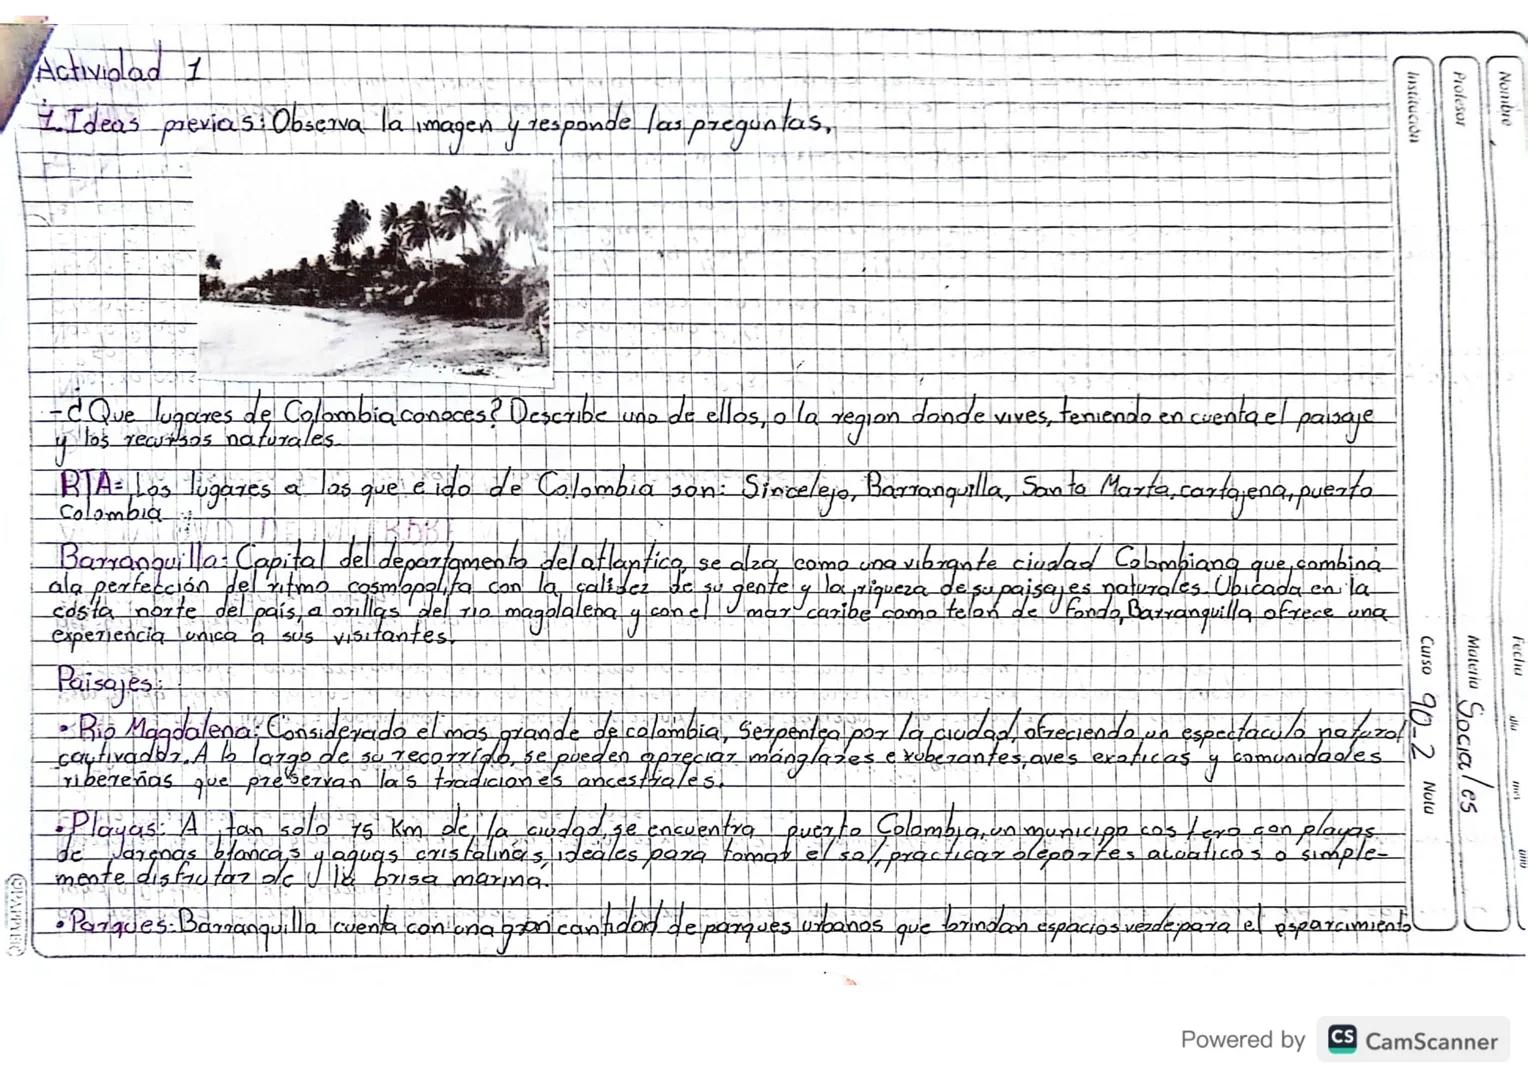 Actividad 1
1. Ideas previas: Observa la imagen y responde las preguntas.
- ¿Que lugares de Colombia conoces? Describe uno de ellos, o la region donde vives, teniendo en cuenta el paisaje
y los recursos naturales.
RTA= Los lugares a los que e ido de Colombia son: Sincelejo, Barranquilla, Santa Marta, cartajena, puerto
Colombia
Barranquilla: Capital del departamento del atlantico, se alza como una vibrante ciudad Colombiana que combina
ala perfección del ritmo cosmopolita con la calidez de su gente y la riqueza de su paisajes naturales. Ubicada en la
costa norte del país, a orillas del rio magdalena y con el mar caribe como telan de fondo, Barranquilla ofrece una
experiencia unica a sus visitantes.
Paisajes:
• Rio Magdalena: Considerado el mas grande de colombia, Serpentea por la ciudad, ofreciendo un espectaculo natural
cautivador. A lo largo de su recorrido, se pueden apreciar manglares exuberantes, aves exoticas y comunidades
ribereñas que preservan las tradiciones ancestrales.
• Playas: A tan solo 15 Km de la ciudad, se encuentra puerto Colombia, un municipio costero con playas
de arenas blancas y aguas cristalinas, ideales para tomar el sol, practicar deportes acuaticos o simple-
mente disfrutar de la brisa marina.
• Parques: Barranquilla cuenta con una gran cantidad de parques urbanos que brindan espacios verde para el esparcimiento
Nombre
Profesor
Institución
Fecha día mes año
Materia Sociales
Curso 90-2 Nota
Powered by CS CamScanner